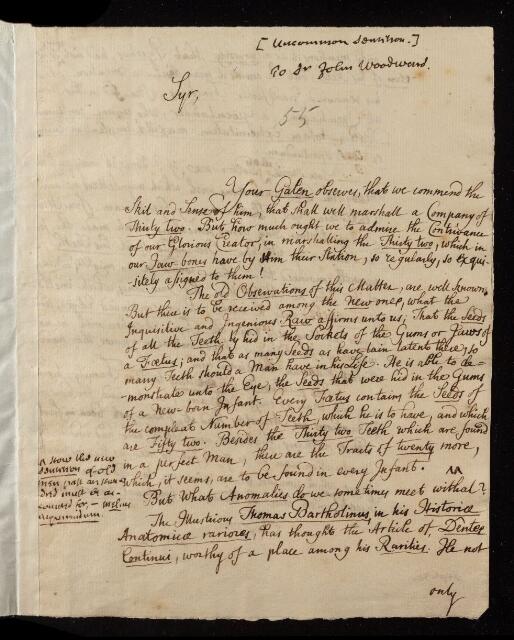 [Uncommon Dentition.]
To Dr John Woodward.
Syr,
55
Your Galen observes, that we commend the
Skil and Sense of him, that shall well marshall a Company of
Thirty two. But how much ought we to admire the Contrivance
of our Glorious Creator, in marshalling the Thirty two, which in
our Jaw-bones have by Him their Station, so regularly, so exqui-
sitely assigned to them!
The old Observations of this Matter, are well known.
But there is to be received among the New ones, what the
Inquisitive and Ingenious Raw affirms unto us; That the Seeds
of all the Teeth ly hid in the Sockets of the Gums or Jaws of
a Fœtus; and that as many Seeds as have lain latent there, so
many Teeth should a Man have in his Life. He is able to de-
monstrate unto the Eye, the Seeds that were hid in the Gums
of a New-born Infant. Every Fœtus contains the Seeds of
the compleat Number of Teeth, which he is to have, and which
are Fifty two. Besides the Thirty two Teeth which are found
in a perfect Man, there are the Tracts of twenty more,
which, it seems, are to be found in every Infant. ^^
^ Now the new
dentition of old
men
must be ac-
counted for;
But What Anomalies do we sometimes meet withal?
The Illustrious Thomas Bartholinus, in his Historiæ
Anatomicæ rariores, has thought the Article of, Dentes
Continui, worthy of a place among his Rarities. He not
only